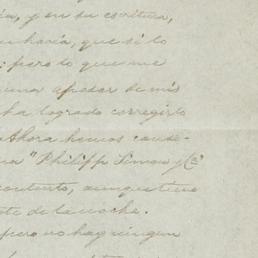 y en su escritura,
haria, que si lo
: pero lo que me
una apesar de mis
ha logrado corregirlo
Ahora hemos
"Philipp Simon y Ca"
contento, aunque tiene
de la noche.
pero no hay ningun